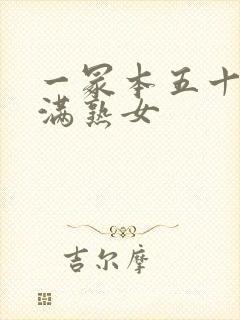 一冢本五十
满熟女
吉尔摩